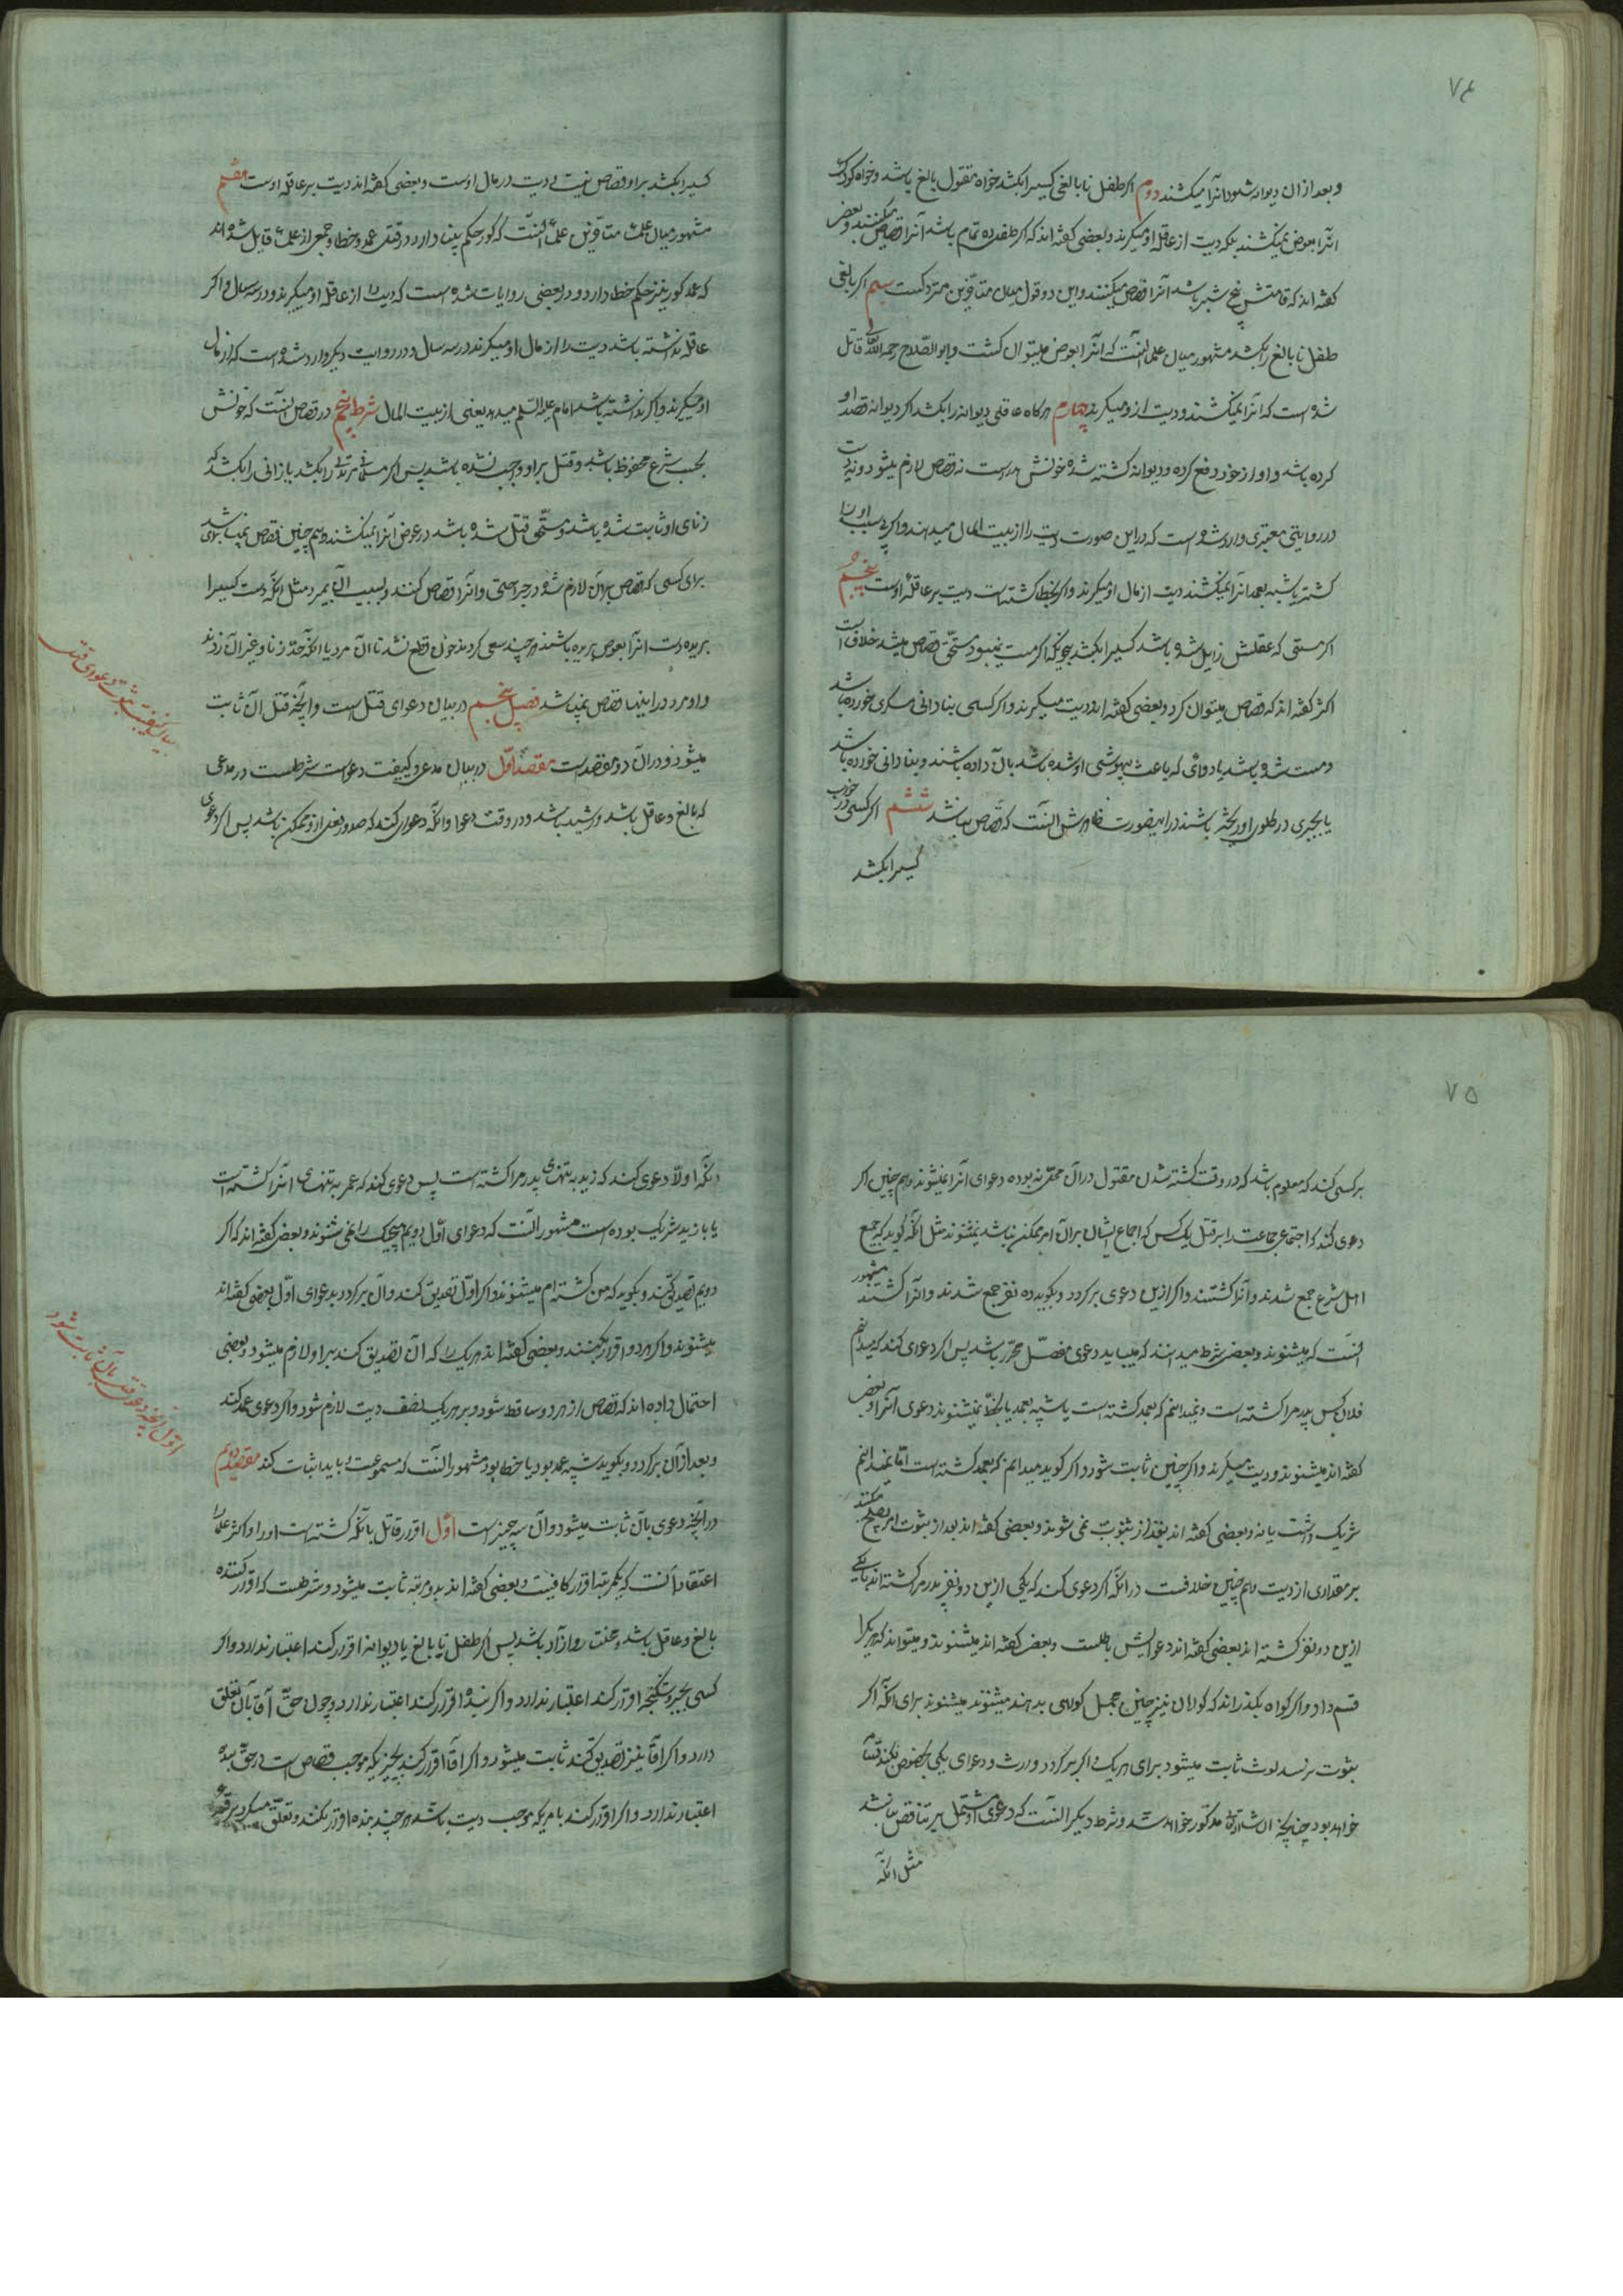 ۷۴
و بعد از ان دیوانه شود انرا میکشند دویم اکر طفل نا بالغی کسیرا بکشد خواه مقتول بالغ باشد و خواه کودک
انرا بعوض نمیکشند بلکه دیت از عاقله او میکیرند و بعضی کفته اند که اکر طفل ده تمام باشد آنرا قصاص میکنند و بعضی
کفته اند که قامتش پنج شبر باشد آنرا قصاص میکنند و این دو قول میان متاخرین متروکست سیم اکر بالغی
طفل نا بالغ را بکشد مشهور میان علما انست که انرا بعوض میتوان کشت و ابو الصلاح رحمه الله قائل
شده است که انرا نمیکشند و دیت از و میکیرند چهارم هرکاه عاقلی دیوانه را بکشد اکر دیوانه قصد او
کرده باشد و او از خود دفع کرده و دیوانه کشته شده خونش هدر است نه قصاص لازم میشود و نه دیت
در روایتی معتبری وارد شده است که در این صورت دیت را از بیت المال میدهند و اکر بی سبب او را
کشته یا شبیه بعمد انرا نمیکشند دیت از مال او میکیرند و اکر بخطا کشته است دیت بر عاقله اوست پنجم
اکر مستی که عقلش زایل شده باشد کسیرا بکشد بحیثیکه اکر مست نمیبود مستحق قصاص میشد خلافست
اکثر کفته اند که قصاص میتوان کرد و بعضی کفته اند دیت میکیرند و اکر کسی بنادانی مسکری خورده باشد
و مست شده باشد یا دوائی که باعث بیهوشی او شده باشد بآن داده باشند و بنادانی خورده باشد
یا بجبری در کلوی او ریخته باشند در اینصورت ظاهرش انست که قصاص نباشد ششم اکر کسی در خواب
کسیرا بکشد
کسیرا بکشد بر او قصاص نیست و دیت در مال اوست و بعضی کفته اند دیت بر عاقله اوست هفتم
مشهور میان علما متاخرین علما انست که کور حکم بینا دارد در قتل عمد و خطا و جمعی از علما قایل شده اند
که عمد کور نیز حکم خطا دارد و در بعضی روایات شده است که دیت از عاقله او میکیرند در سه سال و اکر
عاقله نداشته باشد دیت را از مال او میکیرند در سه سال و در روایت دیکر وارد شده است که از مال
او میکیرند و اکر نداشته باشد امام علیه السلم میدهد یعنی از بیت المال شرط پنجم در قصاص انست که خونش
بحسب شرع محفوظ باشد و قتل بر او واجب نشده باشد پس اکر مسلمانی مرتدی را بکشد یا زانی را بکشد که
زنای او ثابت شده باشد و مستحق قتل شده باشد در عوض آنرا نمیکشند و هم چنین قصاص نمیباشد
برای کسی که قصاص بر آن لازم شود در جراحتی و انرا قصاص کنند و بسبب آن بمیرد مثل انکه دست کسیرا
بریده است انرا بعوض بریده باشند هر چند سعی کردند خون قطع نشد تا ان مرد یا انکه حد زنا و غیر آن زدند
و او مرد در اینها قصاص نمیباشد فصل پنجم در بیان دعوای قتل است و انچه قتل ان ثابت
میشود و در آن دو مقصد است مقصد اول در بیان مدعی و کیفیت دعواست شرطست در مدعی
که بالغ و عاقل باشد و رشید باشد در وقت دعوا و انکه دعوای کند که صدور فعل از و ممکن باشد پس اکر دعوی
بیان کیفیت ثبوت دعوای قتل
۷۵
بر کسی کند که معلوم باشد که در وقت کشته شدن مقتول در آن محل نبوده دعوای انرا نمیشنوند و هم چنین اکر
دعوی کند که اجتماعی جماعت را بر قتل یک کس که اجماع ایشان بر آن امر ممکن نباشد نمیشنوند مثل انکه کوید که جمع
اهل شرع جمع شدند و آنرا کشتند و اکر ازین دعوی بر کردد و بکوید ده نفر جمع شدند و انرا کشتند مشهور
انست که میشنوند و بعضی شرط میدانند که میباید دعوی مفصل محرر باشد پس اکر دعوای کند که میدانم
فلان کس پدر مرا کشته است و نمیدانم که بعمد کشته است یا شبیه بعمد یا بخطا نمیشنوند دعوی انرا و بعضی
کفته اند میشنوند و دیت میکیرند و اکر چنین ثابت شود و اکر کوید میدانم که بعمد کشته است اما نمیدانم
شریک داشت یا نه و بعضی کفته اند بعد از ثبوت نمی شوند و بعضی کفته اند بعد از ثبوت امر بصلح میکنند
بر مقداری از دیت و هم چنین خلافست در انکه اکر دعوی کند که یکی ازین دو نفر پدر مرا کشته اند یا یکی
ازین دو نفر کشته اند بعضی کفته اند دعوایش باطلست و بعضی کفته اند میشنوند و میتواند که هر یک را
قسم داد و اکر کواه بکذراند که کواهان نیز چنین مجمل کواهی بدهند میشنوند میشنوند برای انکه اکر
بثبوت نرسد لوث ثابت میشود برای هر یک و اکر بر کردد وارث و دعوای یکی بخصوص بکند قسامه
خواهد بود چنانچه ان شاء الله مذکور خواهد شد و شرط دیکر انست که دعوی او مشتمل بر تناقض نباشد
مثل انکه
انکه اولا دعوی کند که زید به تنهائی پدر مرا کشته است پس دعوی کند که عمر به تنهای انرا کشته است
یا با زید شریک بوده است مشهور انست که دعوای اول و دویم هیچیک را نمی شنوند و بعضی کفته اند که اکر
دویم تصدیق کند و بکوید که من کشته ام میشنوند و اکر اول تصدیق کند و آن بر کردد بدعوای اول بعضی کفته اند
میشنوند و اکر هر دو اقرار بکنند و بعضی کفته اند هر یک را که آن تصدیق کند بر او لازم میشود و بعضی
احتمال داده اند که قصاص از هر دو ساقط شود و بر هر یک نصف دیت لازم شود و اکر دعوی عمد کند
و بعد از آن بر کردد و بکوید شبیه عمد بود یا خطا بود مشهور انست که مسموعست و باید اثبات کند مقصد دویم
در آنچه دعوی بآن ثابت میشود و آن سه چیز است اول اقرار قاتل بانکه کشته است او را و اکثر علما را
اعتقاد آنست که یکمرتبه اقرار کافیست و بعضی کفته اند بدو مرتبه ثابت میشود و شرطست که اقرار کننده
بالغ و عاقل باشد و مختار و آزاد باشد پس اکر طفل نا بالغ یا دیوانه اقرار کند اعتبار ندارد و اکر
کسی بجبر و شکنجه اقرار کند اعتبار ندارد و اکر بنده اقرار کند اعتبار ندارد و چون حق آقا بآن تعلق
دارد و اکر اقا نیز تصدیق کند ثابت میشود و اکر اقا اقرار کند بچیزیکه موجب قصاص است در حق بنده
اعتبار ندارد و اکر اقرار کند بامریکه موجب دیت باشد هر چند بنده اقرار نکند و تعلق میکیرد برقبه
اول آنچه دعوی قتل بآن ثابت شود